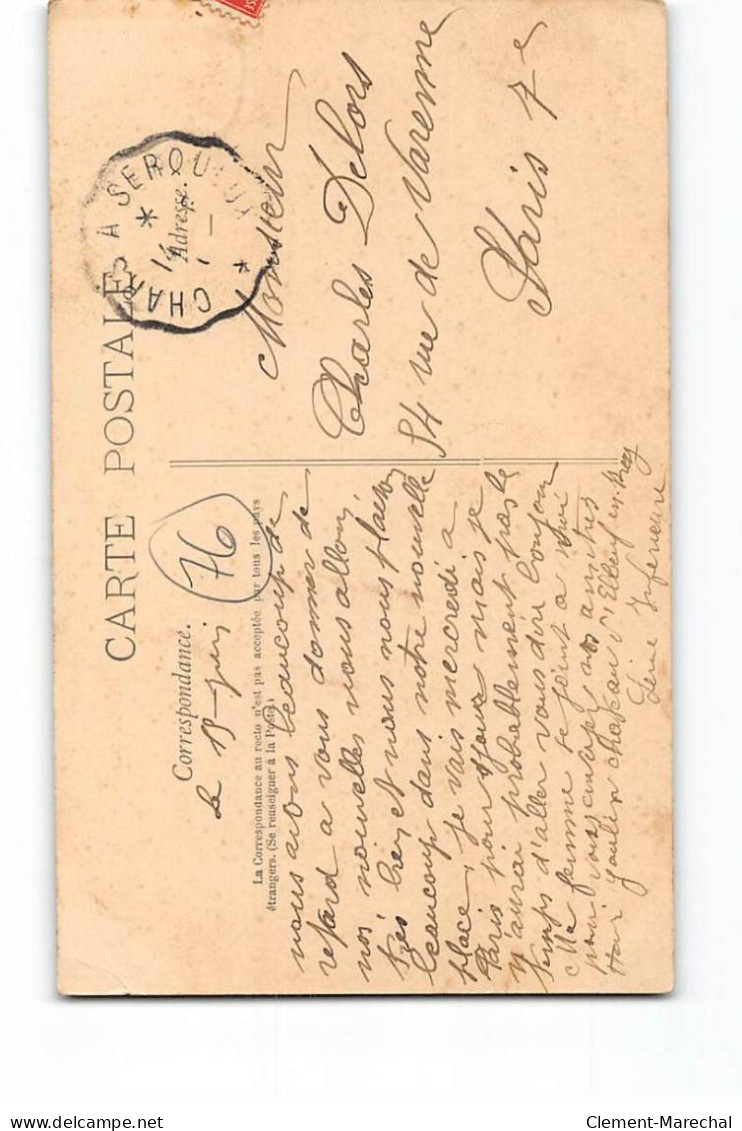 CARTE POSTALE
Correspondance.
Le 15 juin
76
La Correspondance au recto n'est pas acceptée par tous les pays
étrangers. (Se renseigner à la Poste)
nous avons beaucoup de
retard a vous donner de
nos nouvelles nous allons
très bien et nous nous plaisons
beaucoup dans notre nouvelle
place, je vais mercredi a
Paris pour jour mais je
n'aurai probablement pas le
temps d'aller vous dire bonjour
Ma femme se joint a moi
pour vous envoyer nos amitiés
Gaulin chateau d'
Seine Inférieure
Adresse.
CHARS A SEROU
Monsieur
Charles Delors
54 rue de Varenne
Paris 7e
Clement-Marechal